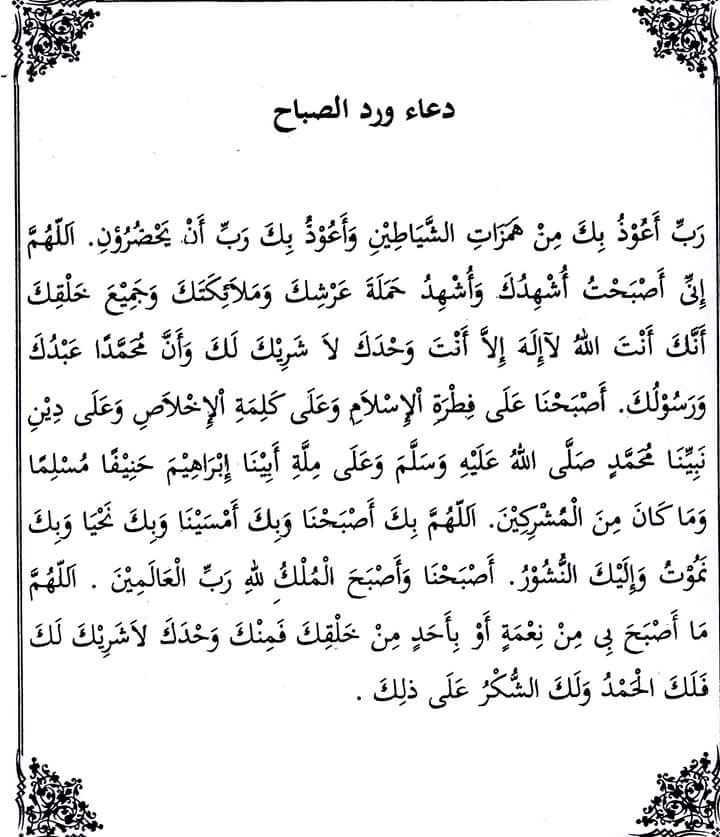 دعاء ورد الصباح
رَبِّ أَعُوْذُ بِكَ مِنْ هَمَزَاتِ الشَّيَاطِيْنِ وَأَعُوْذُ بِكَ رَبِّ أَنْ يَحْضُرُوْنِ. اَللّٰهُمَّ
إِنِّيْ أَصْبَحْتُ أُشْهِدُكَ وَأُشْهِدُ حَمَلَةَ عَرْشِكَ وَمَلَائِكَتَكَ وَجَمِيْعَ خَلْقِكَ
أَنَّكَ أَنْتَ اللهُ لَآإِلَهَ إِلاَّ أَنْتَ وَحْدَكَ لاَ شَرِيْكَ لَكَ وَأَنَّ مُحَمَّدًا عَبْدُكَ
وَرَسُوْلُكَ. أَصْبَحْنَا عَلَى فِطْرَةِ الْإِسْلَامِ وَعَلَى كَلِمَةِ الْإِخْلَاصِ وَعَلَى دِيْنِ
نَبِيِّنَا مُحَمَّدٍ صَلَّى اللهُ عَلَيْهِ وَسَلَّمَ وَعَلَى مِلَّةِ أَبِيْنَا إِبْرَاهِيْمَ حَنِيْفًا مُسْلِمًا
وَمَا كَانَ مِنَ الْمُشْرِكِيْنَ. اَللّٰهُمَّ بِكَ أَصْبَحْنَا وَبِكَ أَمْسَيْنَا وَبِكَ نَحْيَا وَبِكَ
نَمُوْتُ وَإِلَيْكَ النُّشُوْرُ. أَصْبَحْنَا وَأَصْبَحَ الْمُلْكُ لِلهِ رَبِّ الْعَالَمِيْنَ . اَللّٰهُمَّ
مَا أَصْبَحَ بِى مِنْ نِعْمَةٍ أَوْ بِأَحَدٍ مِنْ خَلْقِكَ فَمِنْكَ وَحْدَكَ لاَشَرِيْكَ لَكَ
فَلَكَ الْحَمْدُ وَلَكَ الشُّكْرُ عَلَى ذلِكَ .